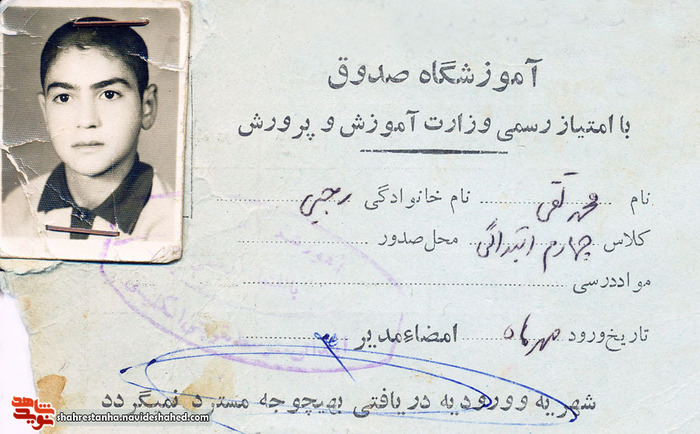 آموزشگاه صدوق
با امتیاز رسمی وزارت آموزش و پرورش
نام محمد تقی نام خانوادگی رجبی
کلاس چهارم ابتدائی محل صدور
مواد درسی
تاریخ ورود مهرماه امضاء مدیر
شهریه و ورودیه دریافتی بهیچوجه مسترد نمیگردد
نوید شاهد
shahrestanha.navideshahed.com